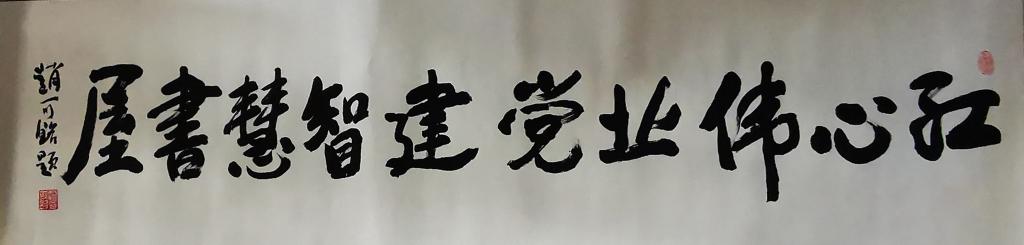 红心伟业党建智慧書屋
趙可銘題